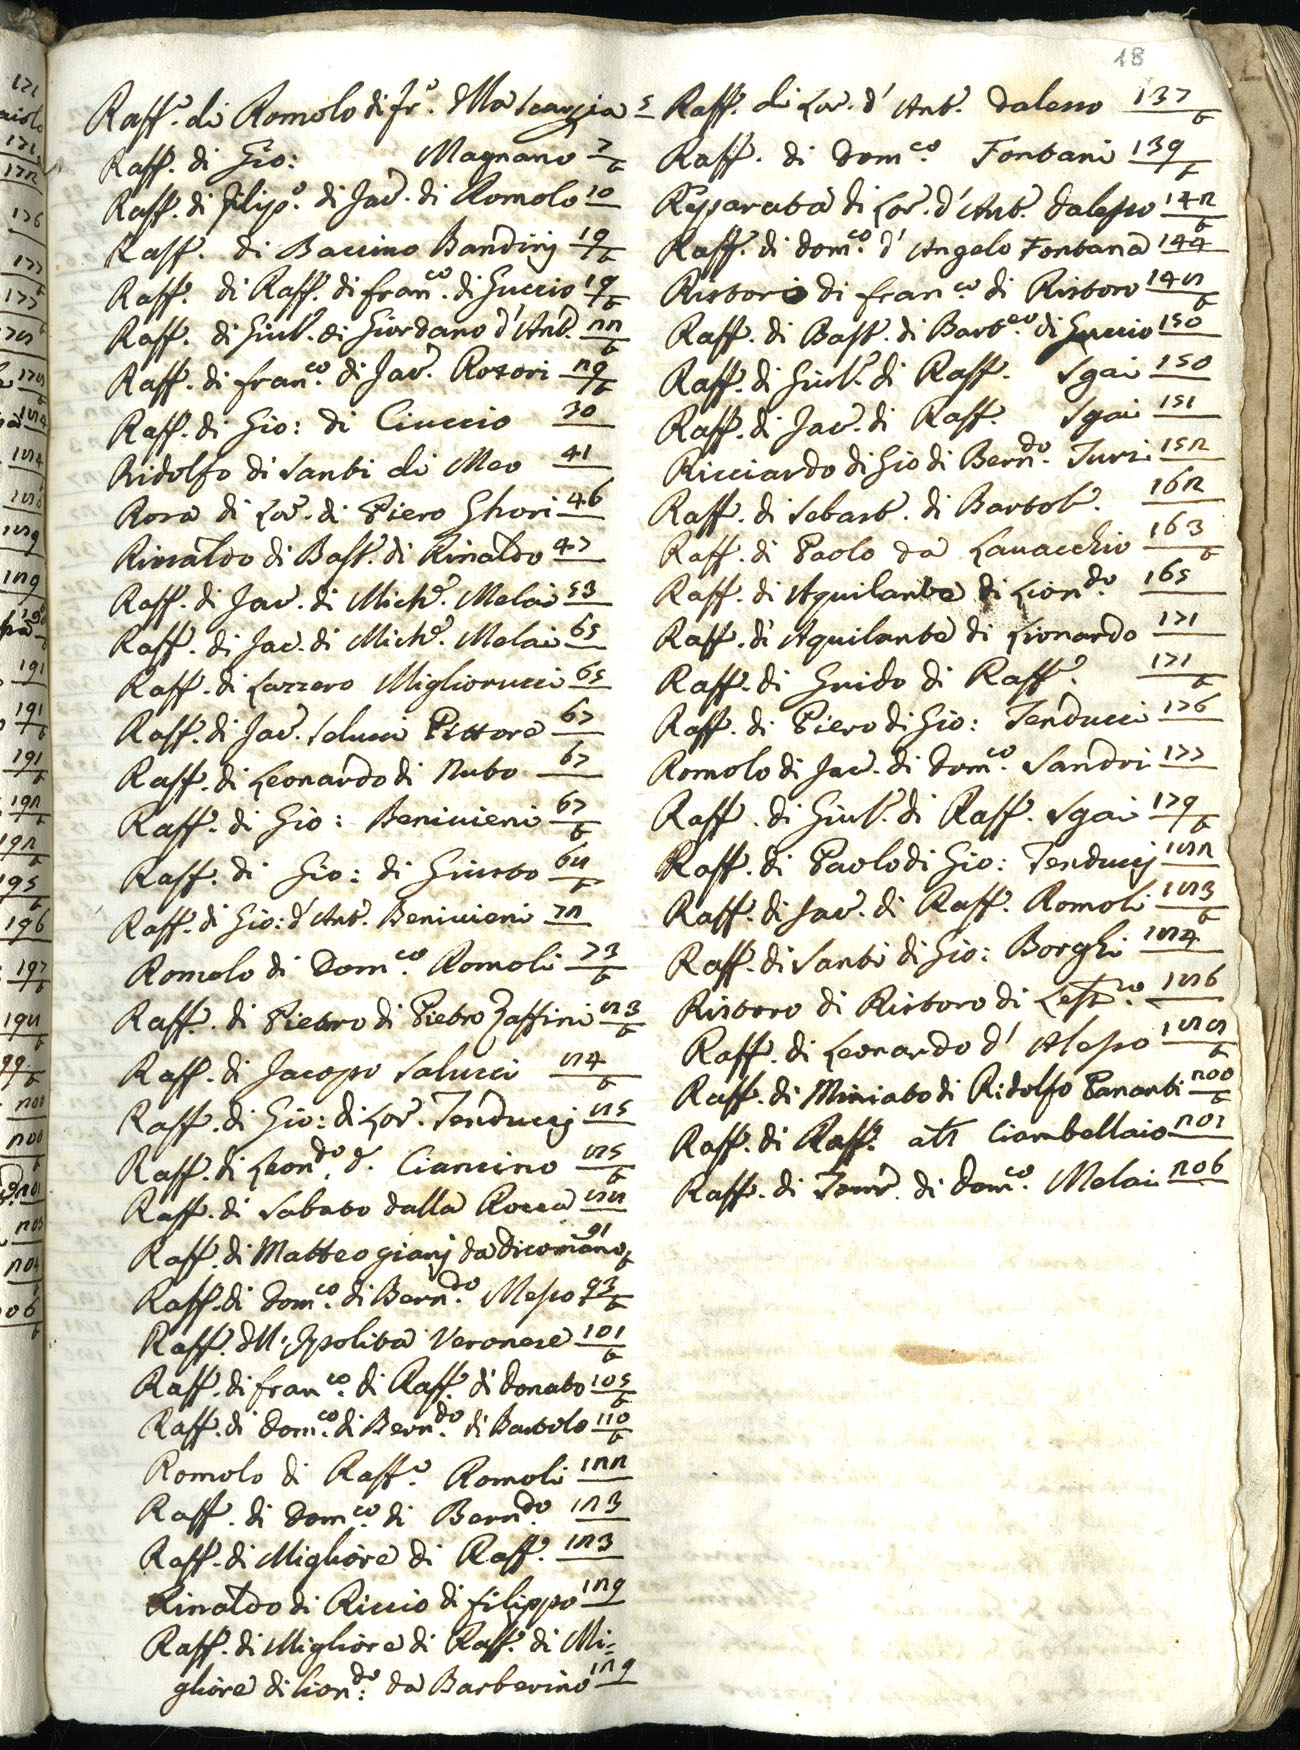 18
Raff.o di Romolo di Fr.o Mascagia 5
Raff. di Gio: Magnano 7/b
Raff. di Filip.o di Jac. di Romolo 10
Raff. di Baccino Bandinj 19/b
Raff. di Raff. di Fran.co di Guccio 19/b
Raff. di Giul. di Giordano d'Ant. 22/b
Raff. di Fran.co di Jac. 29/b
Raff. di Gio: di Ciuccio 30
Ridolfo di Santi di Meo 41
Rosa di Lor. di Piero Ghori 46
Rinaldo di Bast. di Rinaldo 47
Raff. di Jac. di Mich. Melai 53
Raff. di Jac. di Mich. Melai 65
Raff. di Lazzero Migliorucci 65
Raff. di Jac. Selucci Pittore 67
Raff. di Leonardo di Nuto 67
Raff. di Gio: Benivieni 67/b
Raff. di Gio: di Giusto 68/b
Raff. di Gio: d'Ant. Benivieni 72
Romolo di Dom.co Romoli 73/b
Raff. di Pietro di Pietro Zaffini 83/b
Raff. di Jacopo Salucci 84/b
Raff. di Gio: di Lor. Tenduccj 85
Raff. di Leon.do d. Ciancino 85/b
Raff. di Sabato dalla Rocca 88
Raff. di Matteo gianj da Dicomano 91/b
Raff. di Dom.co di Bern.do Messo 93/b
Raff. M. Ipolita Veronese 101/b
Raff. di Fran.co di Raff. di Donato 105/b
Raff. di Dom.co di Bern.do di Bartolo 110/b
Romolo di Raff.o Romoli 122
Raff. di Dom.co di Bern.do 123
Raff. di Migliore di Raff. 123
Rinaldo di Riccio di Filippo 129
Raff. di Migliore di Raff. di Mi=
gliore di Lion.do da Barberino 129
Raff. di Lor. d'Ant. Dalesso 137/b
Raff. di Dom.co Fontani 139/b
Repparata di Lor. d'Ant. Dalesso 142/b
Raff. di Dom.co d'Angelo Fontana 144
Ristoro di Fran.co di Ristoro 148/b
Raff. di Bast. di Bart.eo di Guccio 150
Raff. di Giul. di Raff. Sgai 150
Raff. di Jac. di Raff. Sgai 151
Ricciardo di Gio di Bern.do Turi 152
Raff. di Sebast. di Bartol. 162
Raff. di Paolo da Lavacchio 163/b
Raff. di Aquilante di Lion.do 165
Raff. di Aquilante di Lionardo 171
Raff. di Guido di Raff. 171/b
Raff. di Piero di Gio: Tenducci 176
Romolo di Jac. di Dom.co Sandri 177
Raff. di Giul. di Raff. Sgai 179/b
Raff. di Paolo di Gio: Tenduccj 182
Raff. di Jac. di Raff. Romoli 183/b
Raff. di Santi di Gio: Borghi 184
Ristoro di Ristoro di 186
Raff. di Leonardo d'Alesso 188/b
Raff. di Miniato di Ridolfo Pananti 200/b
Raff. di Raff. Ciambellaio 201
Raff. di Tom. di Dom.co Melai 206